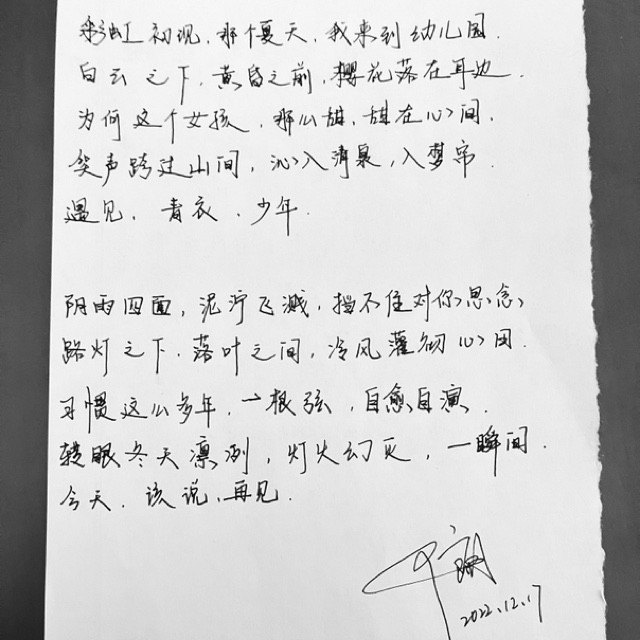 彩虹初现，那个夏天，我来到幼儿园．
白云之下，黄昏之前，樱花落在耳边．
为何这个女孩，那么甜，甜在心间．
笑声跨过山间，沁入清泉，入梦帘．
遇见，青衣、少年．
阴雨四面，泥泞飞溅，挡不住对你思念
路灯之下，落叶之间，冷风灌彻心田．
习惯这么多年，一根弦，自愈自演．
转眼冬天凛冽，灯火幻灭，一瞬间．
今天，该说，再见．
2022.12.17